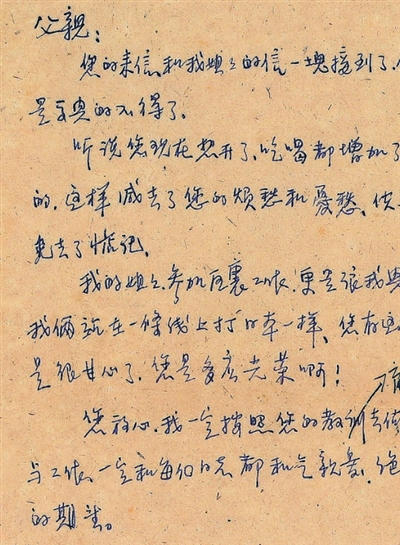 父親：
您的来信和我姐々的信一塊接到了.
是高興的不得了.
听说您现在想开了、吃喝都增加了
的.这样减去了您的烦愁和憂愁、使
免去了惦记、
我的姐々参加后裏工作.更是很我興
我俩就在一條线上打日本一样、您在
是很甘心了、您是多麽光荣啊！
您放心.我一定按照您的教训去做
与工作、一定和每位同志都和气親爱、绝
的期望。